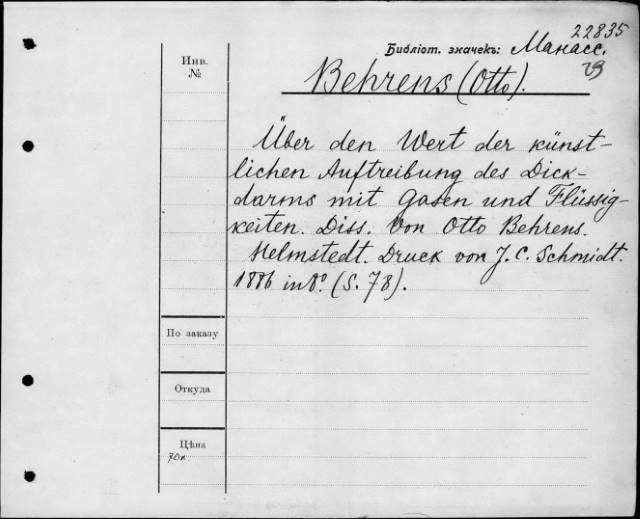 22835
Библіот. значекъ: Манасс.
29
Инв.
№
Behrens (Otto).
Über den Wert der künst-
lichen Auftreibung des Dick-
darms mit Gasen und Flüssig-
keiten. Diss. von Otto Behrens.
Helmstedt. Druck von J. C. Schmidt.
1886 in 8º. (S. 78).
По заказу
Откуда
Цѣна
70к